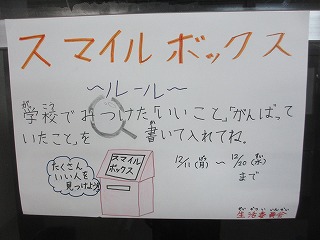 スマイルボックス
～ルール～
学校でみつけた「いいこと」「がんばって
いたこと」を書いて入れてね。
12/11(月)～12/20(水)
まで
たくさん
いい人を
見つけよう
スマイル
ボックス
生活委員会